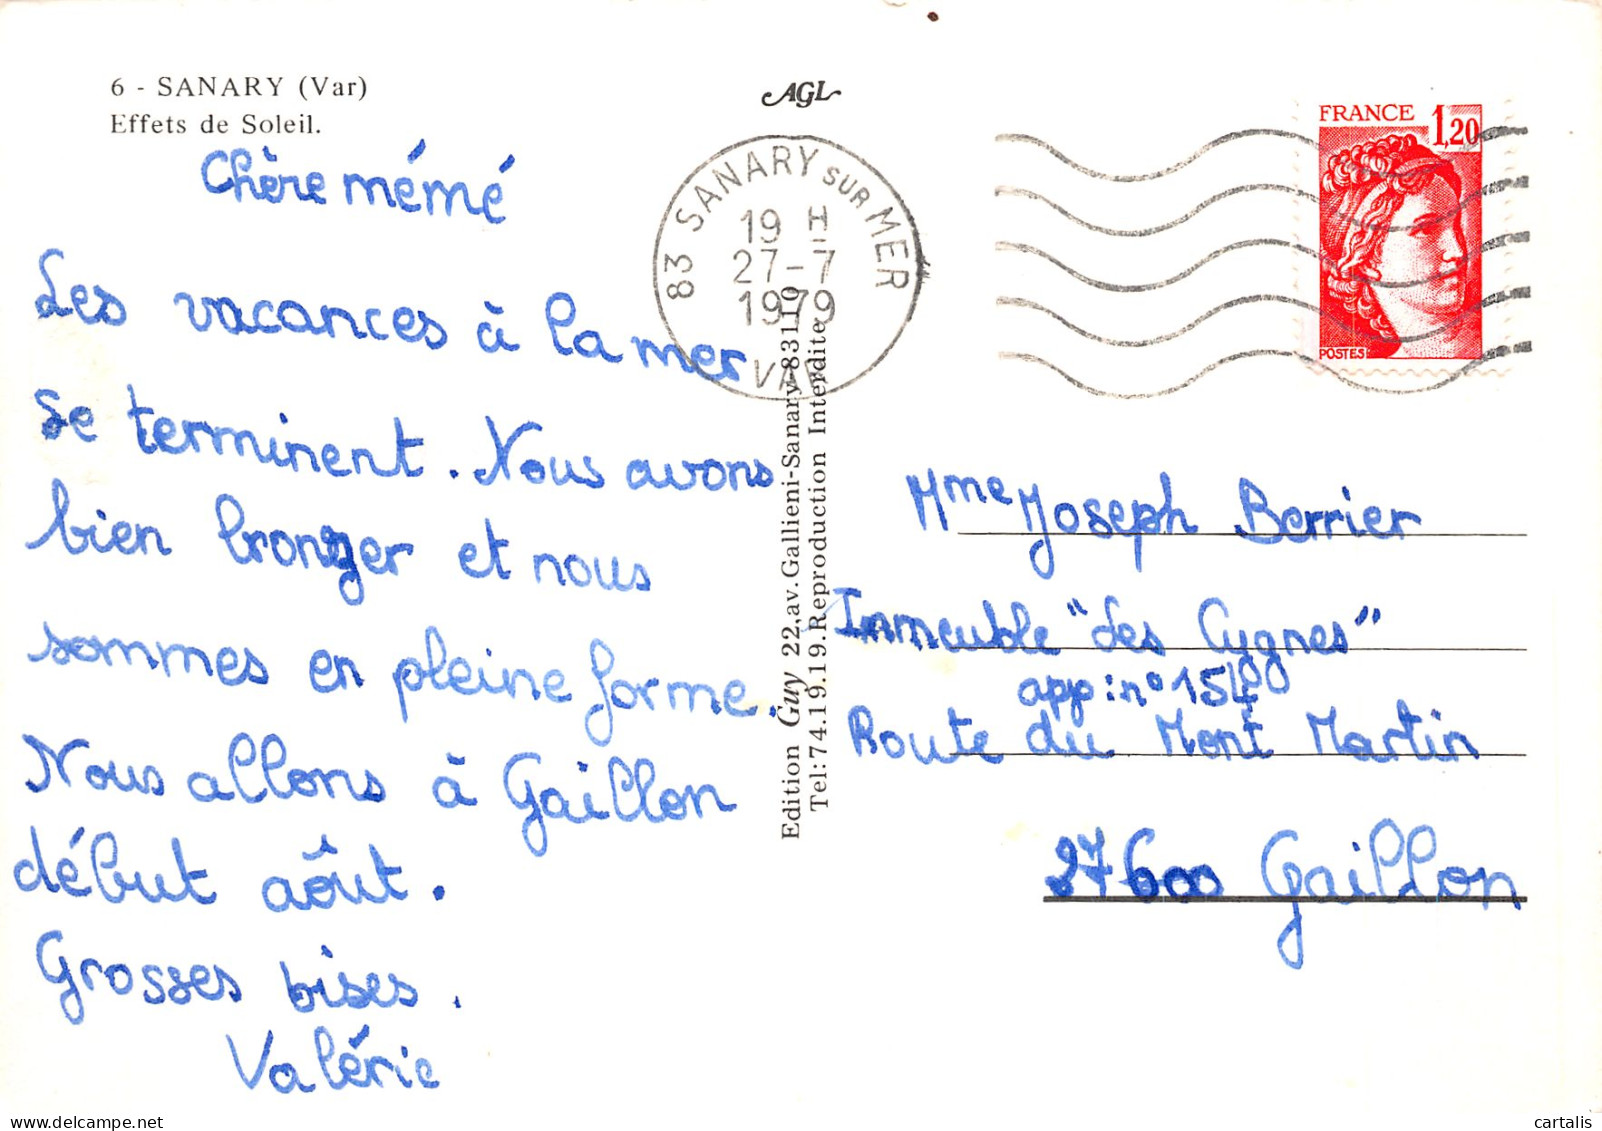 6 - SANARY (Var)
Effets de Soleil.
Chère mémé
Les vacances à la mer
se terminent. Nous avons
bien bronzer et nous
sommes en pleine forme.
Nous allons à Gaillon
début août.
Grosses bises.
Valérie
AGL
83 SANARY SUR MER
19 H
27-7
1979
VAR
Edition Guy 22,av.Gallieni-Sanary-83110
Tel:74.19.19.Reproduction Interdite
FRANCE 1,20
POSTES
Mme Joseph Berrier
Immeuble "Les Cygnes"
app: n° 154
Route du Mont Martin
27600 Gaillon
delcampe.net
cartalis